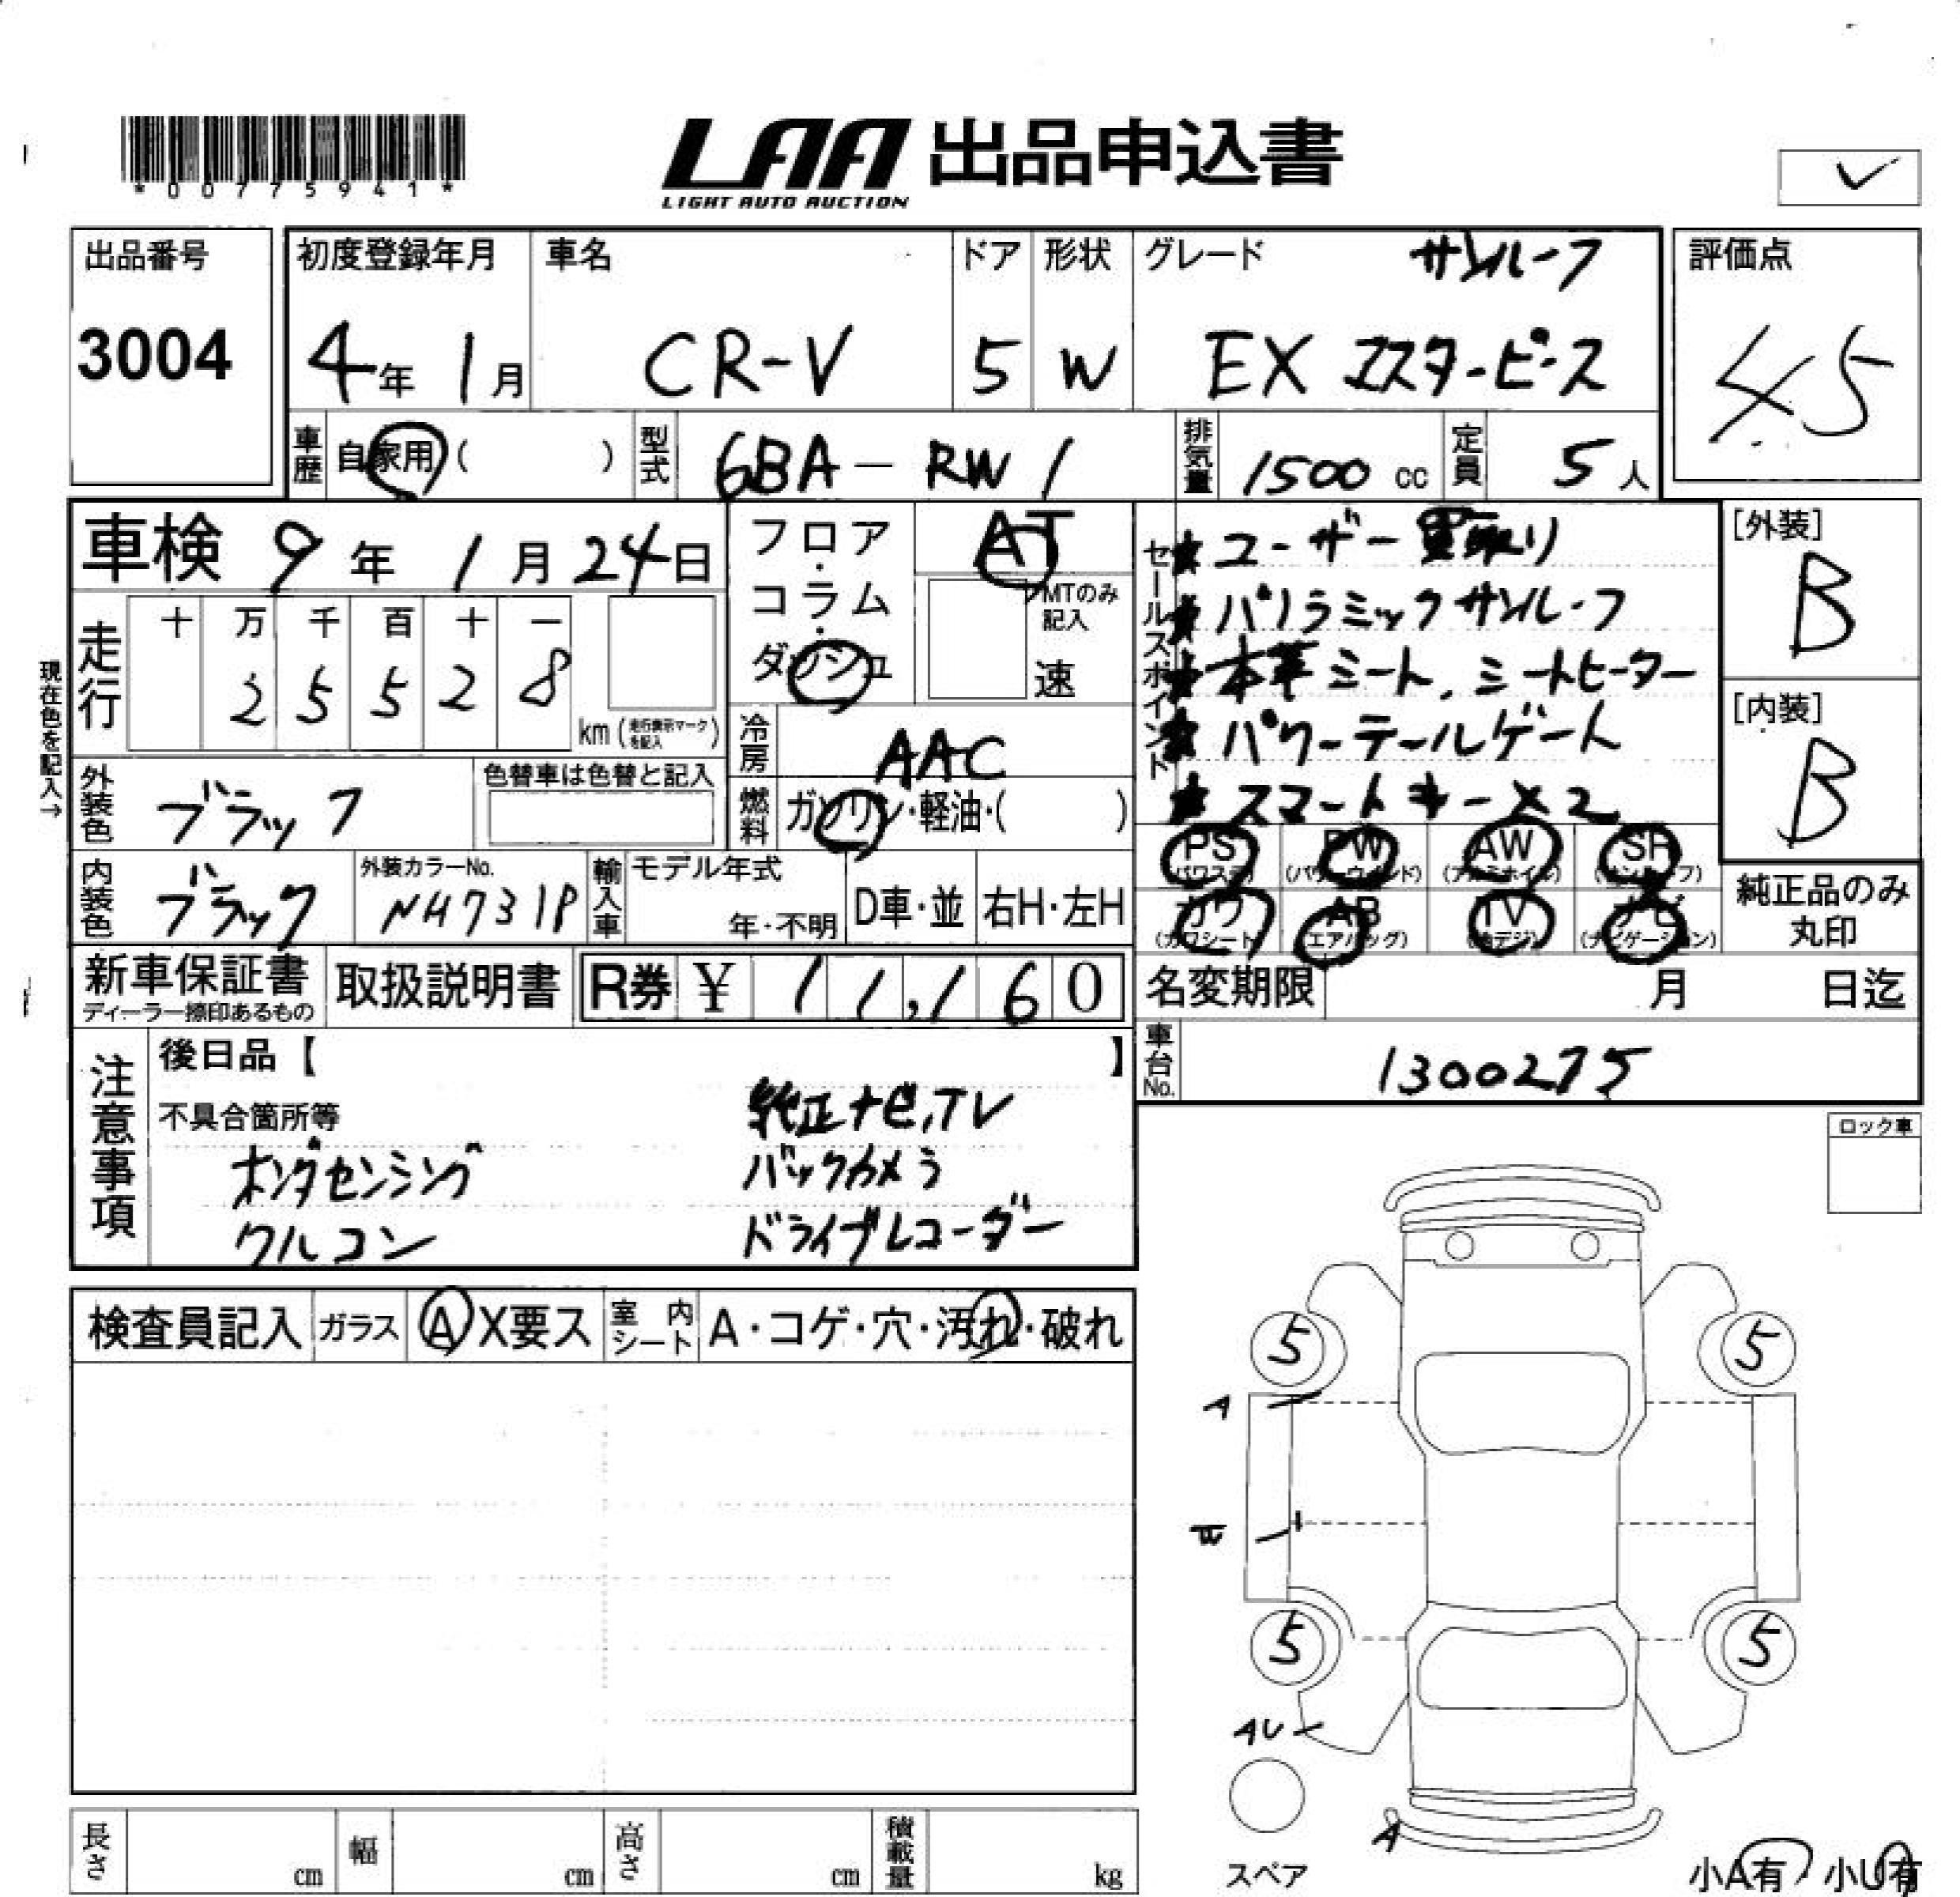 *00775941*
LAA 出品申込書
LIGHT AUTO AUCTION
出品番号
3004
初度登録年月
4年 1月
車名
CR-V
ドア
5
形状
W
グレード
サンルーフ
EX マスターピース
評価点
45
車歴 自家用( )
型式 6BA-RW1
排気量 1500 cc
定員 5 人
車検 9年 1月 24日
フロア・コラム・ダッシュ
AT
MTのみ記入
速
セールスポイント
★ユーザー買取り
★パノラミックサンルーフ
★本革シート、シートヒーター
★パワーテールゲート
★スマートキー×2
[外装]
B
[内装]
B
現在色を記入→
走行
十 万 千 百 十 一
2 5 5 2 8
km(走行表示マークを記入)
冷房 AAC
外装色 ブラック
色替車は色替と記入
燃料 ガソリン・軽油・( )
PS (パワステ) PW (パワーウインド) AW (アルミホイル) SR (サンルーフ)
カワ (カワシート) AB (エアバッグ) TV (地デジ) ナビ (ナビゲーション)
純正品のみ丸印
内装色 ブラック
外装カラーNo. NH731P
輸入車 モデル年式
年・不明
D車・並 右H・左H
新車保証書
ディーラー捺印あるもの
取扱説明書
R券 ¥ 11,160
名変期限 月 日迄
車台No. 1300275
注意事項
後日品【 】
不具合箇所等
純正ナビ,TV
ホンダセンシング バックカメラ
クルコン ドライブレコーダー
ロック車
検査員記入 ガラス A X要ス 室内シート A・コゲ・穴・汚れ・破れ
5 5
A
5 5
AU
A
スペア
小A有 小U有
長さ cm 幅 cm 高さ cm 積載量 kg